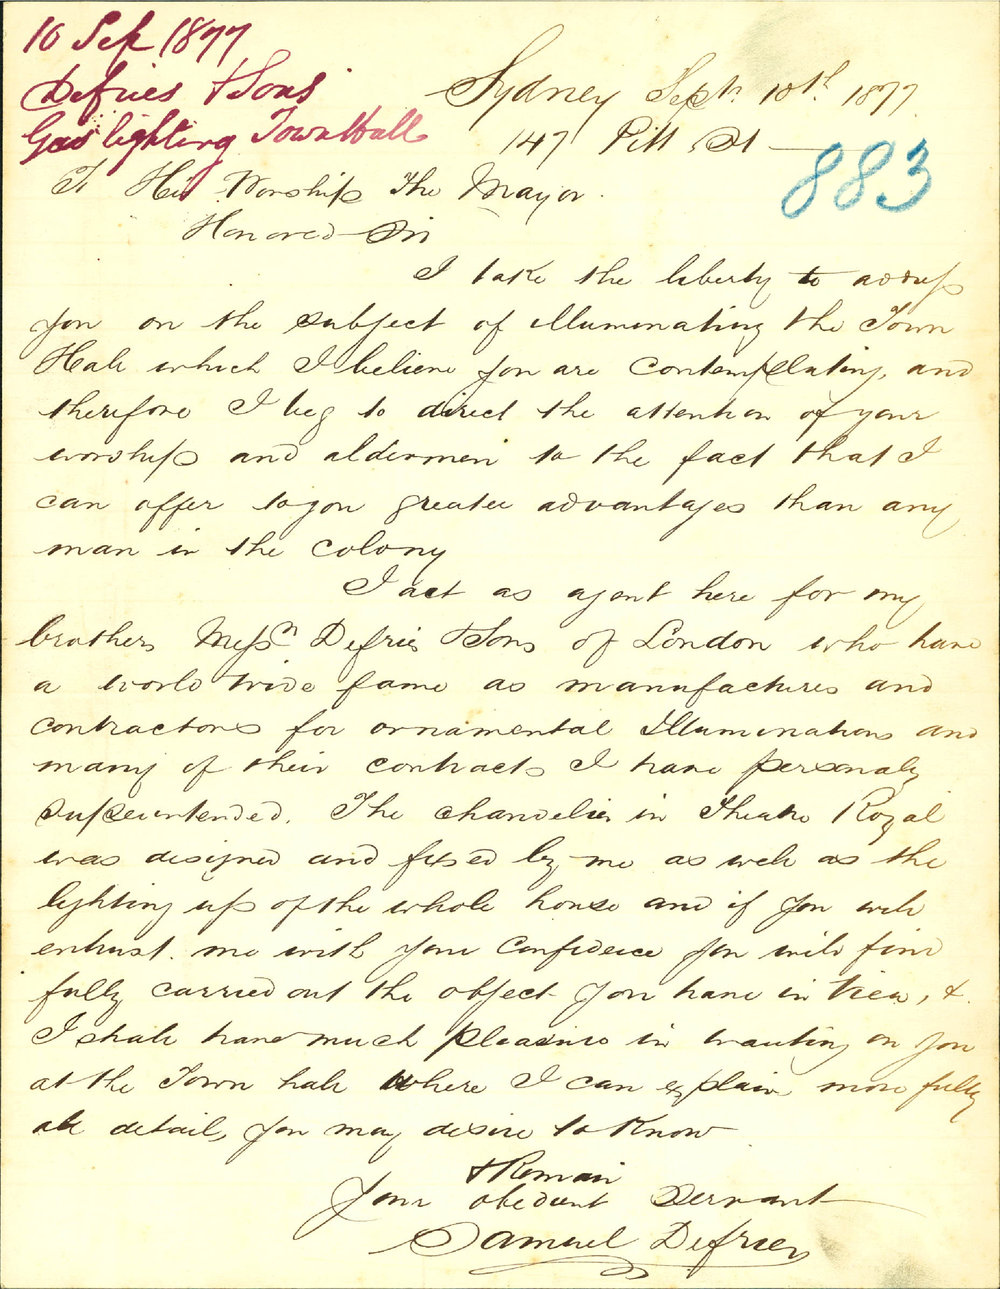 10 Sep 1877
Defries & Sons
Gas lighting Town Hall
Sydney Sept. 10th. 1877.
147 Pitt St
883
To His Worship The Mayor.
Honored Sir
I take the liberty to address
you on the subject of illuminating the Town
Hall which I believe you are contemplating, and
therefore I beg to direct the attention of your
worship and aldermen to the fact that I
can offer to you greater advantages than any
man in the colony
I act as agent here for my
brothers Messrs Defries & Sons of London who have
a world wide fame as manufactures and
contractors for ornamental Illuminations and
many of their contracts I have personaly
superintended. The chandelier in Theatre Royal
was designed and fixed by me as well as the
lighting up of the whole house and if you will
entrust me with your confidence you will find
fully carried out the object you have in view, &
I shall have much pleasure in waiting on you
at the Town hall where I can explain more fully
all details you may desire to know
& Remain
Your obedient Servant
Samuel Defries